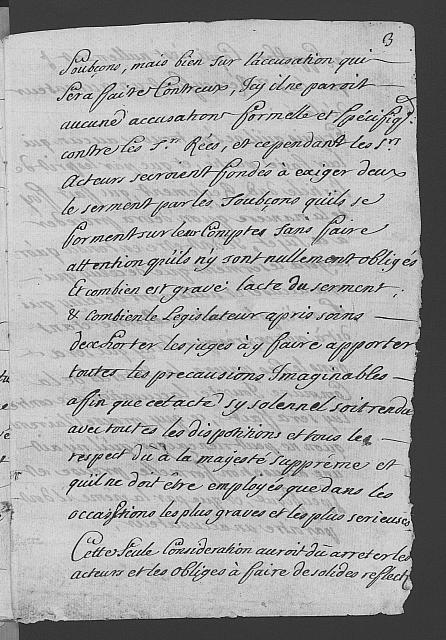 3
Soubçons, mais bien sur l'accusation qui
sera faite Contr'eux, Icy il ne paroit
aucune accusations formelle et spécifiqe
contre les Srs Rées, et cependant les Srs
Acteurs seroient fondés à exiger deux
le serment par les Soubçons qu'ils se
forment sur leur Comptes sans faire
attention qu'ils n'y sont nullement obligés
Et combien est gravé l'acte du serment,
& Combien le Législateur a pris soins
dexhorter les juges à y faire apporter
toutes les precausions Imaginables
affin que cet acte sy solennel soit rendu
avec toutes les dispositions et tous les
respect dû à la majesté Suppréme et
quil ne doit être employés que dans les
occasions les plus graves et les plus serieuses
Cette Seule Consideration auroit dû arreter les
acteurs et les obliges à faire de solides reflect